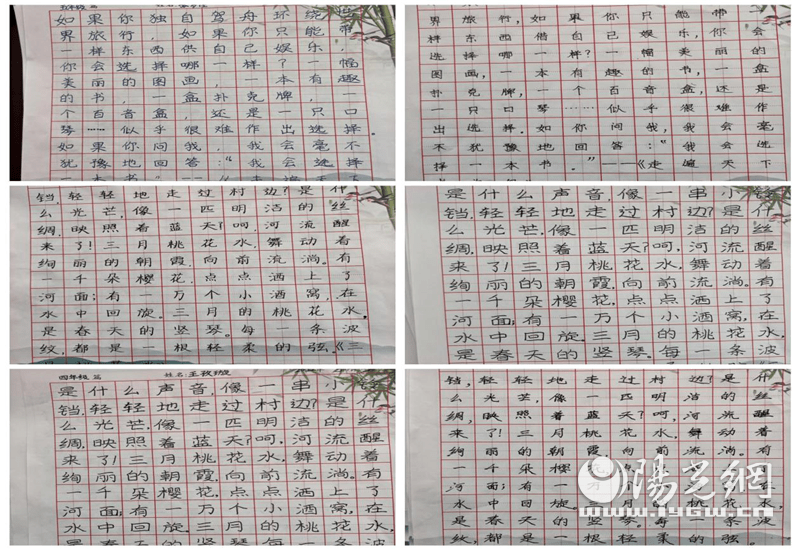 五年级 篇
如果你独自驾舟环绕
界旅行,如果你只能带
一样东西供自己娱乐
你会选择哪一样?一幅
美丽的图画,一本有趣
的书,一盒扑克牌,一
个百音盒,还是一只口
琴……似乎很难作出选择
如果你问我,我会毫不
犹豫地回答:“我会选择
一本书。”——《走遍天下
界旅行,如果你只能带
样东西借自己娱乐,你会
选择哪一样?一幅美丽的
图画,一本有趣的书,一盒
扑克牌,一个百音盒,还是
一只口琴……似乎很难作
出选择.如你问我,我会毫
不犹豫地回答:“我会选
择一本书。”——《走遍天下
铛,轻轻地走过村边?是什
么光芒,像一匹明洁的丝
绸,映照着蓝天?呵,河流醒
来了!三月桃花水,舞动着
绚丽的朝霞,向前流淌。有
一千朵樱花,点点洒上了
河面;有一万个小酒窝,在
水中回旋。三月的桃花水,
是春天的竖琴。每一条波
纹,都是一根轻柔的弦。《三
是什么声音,像一串小铃
铛,轻轻地走过村边?是什
么光芒,像一匹明洁的丝
绸,映照着蓝天?呵,河流醒
来了!三月桃花水,舞动着
绚丽的朝霞,向前流淌。有
一千朵樱花,点点洒上了
河面;有一万个小酒窝,在
水中回旋。三月的桃花水,
是春天的竖琴。每一条波
四年级 篇
姓名:王
是什么声音,像一串小
铛,轻轻地走过村边?是什
么光芒,像一匹明洁的丝
绸,映照着蓝天?呵,河流醒
来了!三月桃花水,舞动着
绚丽的朝霞,向前流淌。有
一千朵樱花,点点洒上了
河面;有一万个小酒窝,在
水中回旋。三月的桃花水,
铛,轻轻地走过村边?是什
么光芒,像一匹明洁的丝
绸,映照着蓝天?呵,河流醒
来了!三月桃花水,舞动着
绚丽的朝霞,向前流淌。有
一千朵樱花,点点洒上了
河面;有一万个小酒窝,在
水中回旋。三月的桃花水,
是春天的竖琴。每一条波
纹,都是一根轻柔的弦。
陽光網
www.iygw.cn